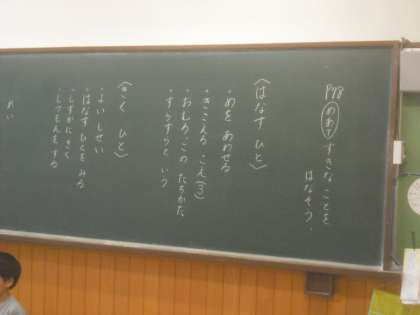 P78
めあて すきな ことを
はなそう。
〈はなす ひと〉
・めを あわせる
・きこえる こえ(3)
・おしり、この たちかた
・すらすらと いう
〈きく ひと〉
・よい しせい
・はなす ひとを みる
・しずかに きく
・しつもんを する
れい